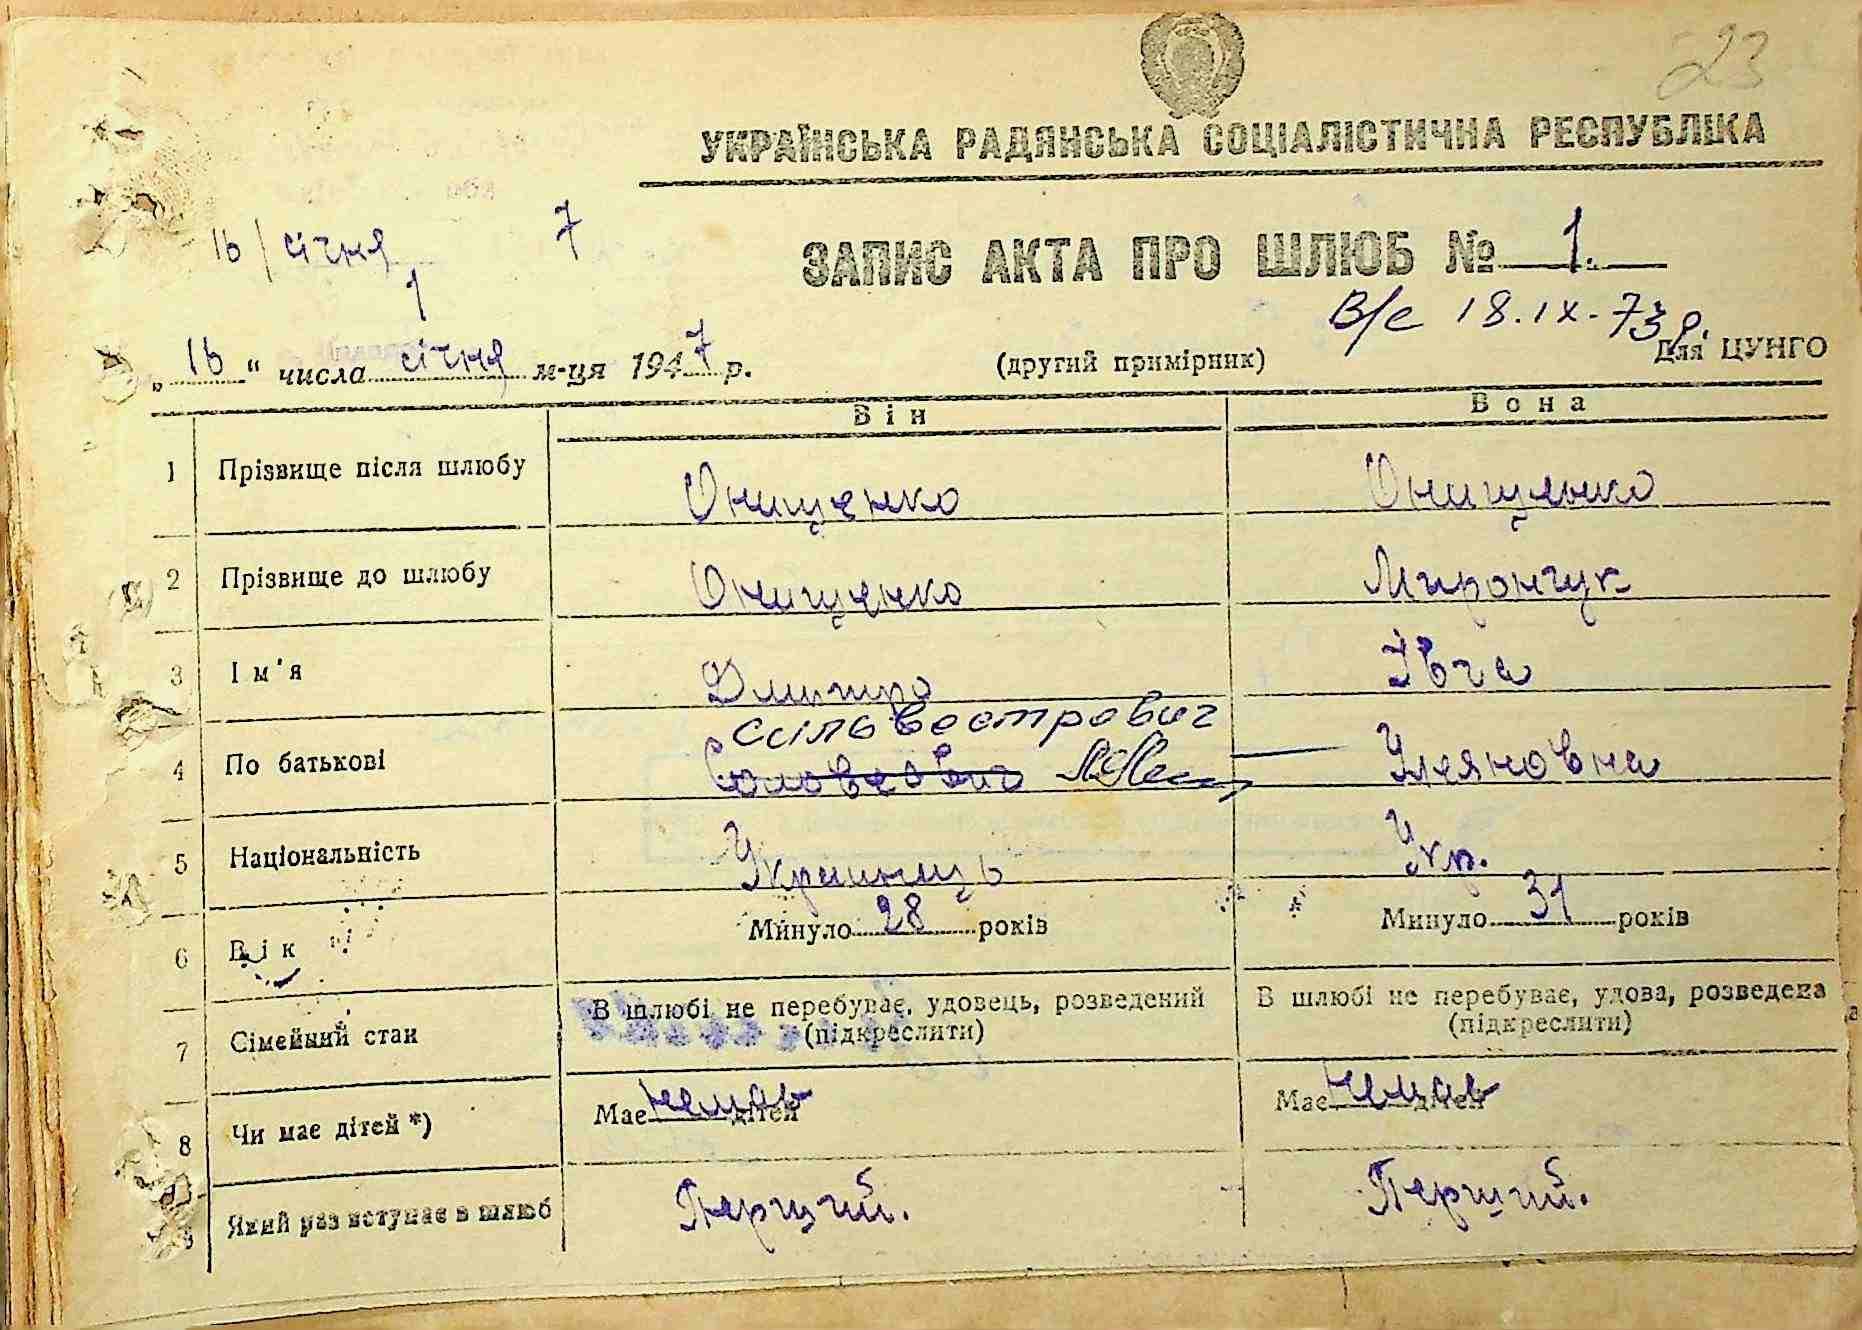 23
УКРАЇНСЬКА РАДЯНСЬКА СОЦІАЛІСТИЧНА РЕСПУБЛІКА
16/січня 7
1
ЗАПИС АКТА ПРО ШЛЮБ № 1.
В/с 18.ІХ-73р.
„16“ числа січня м-ця 1947 р. (другий примірник) Для ЦУНГО
Він Вона
1 Прізвище після шлюбу Онищенко Онищенко
2 Прізвище до шлюбу Онищенко Мирончук
3 Ім'я Дмитро Ївга
Сільвестрович
4 По батькові Соловеович Уляновна
5 Національність Украинець Укр.
6 Вік Минуло 28 років Минуло 31 років
7 Сімейний стан В шлюбі не перебуває, удовець, розведений (підкреслити) В шлюбі не перебуває, удова, розведена (підкреслити)
8 Чи має дітей *) Має немає дітей Має немає дітей
Який раз вступає в шлюб Перший. Перший.